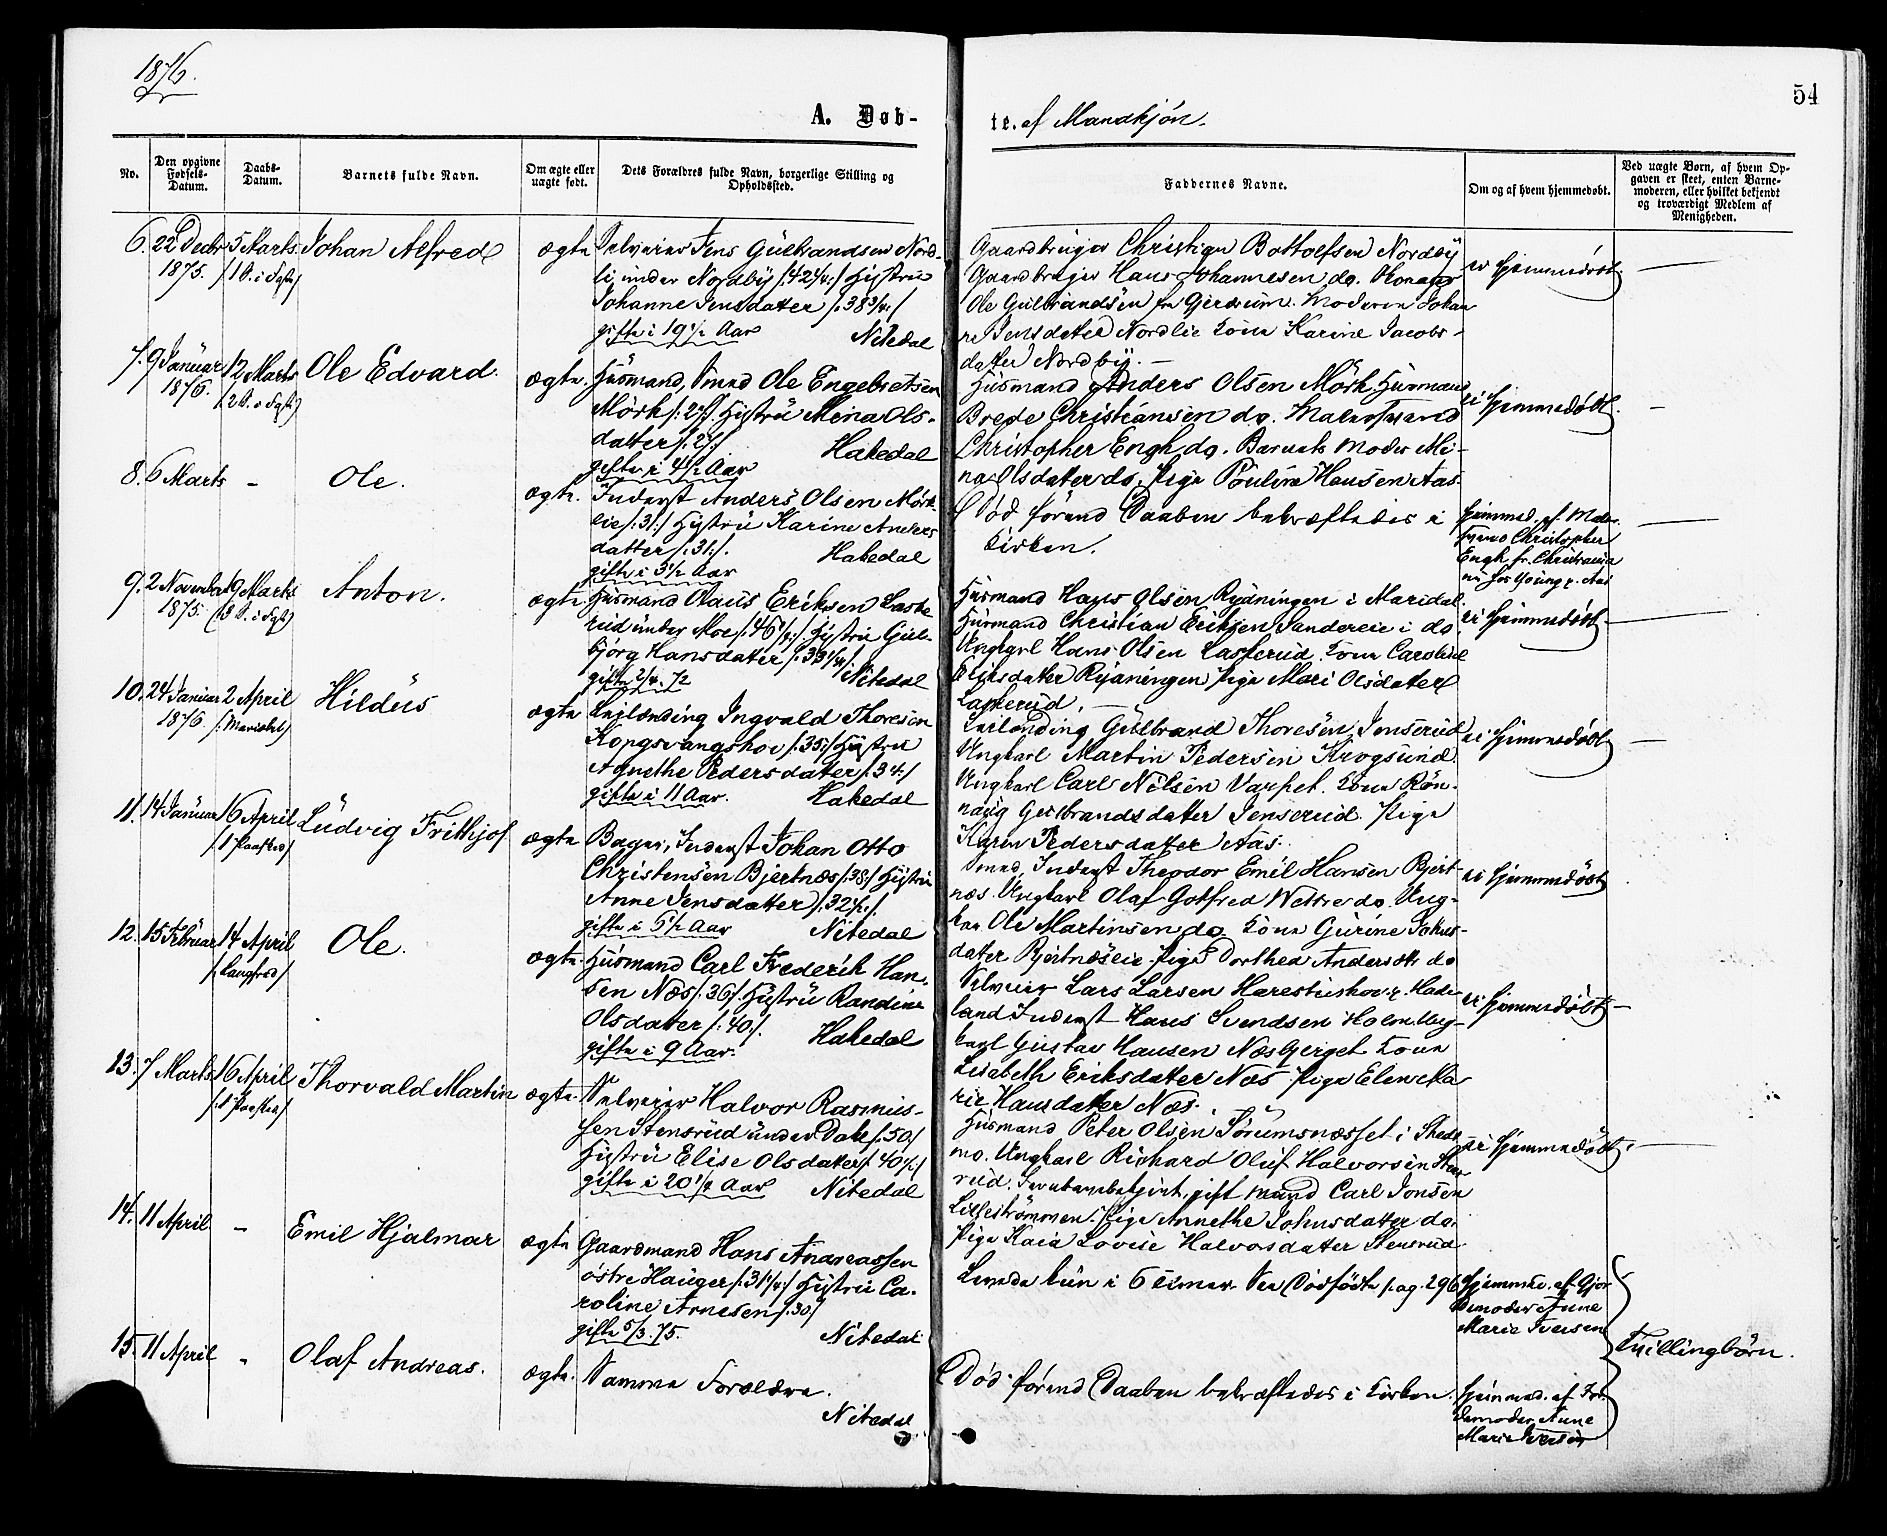 1876.
54
A. Døb-
te. af Mandkjøn.
No.
Den opgivne Fødsels-Datum.
Daabs-Datum.
Barnets fulde Navn.
Om ægte eller uægte født.
Dets Forældres fulde Navn, borgerlige Stilling og Opholdssted.
Faddernes Navne.
Om og af hvem hjemmedøbt.
Ved uægte Børn, af hvem Opgaven er skeet, enten Barnemoderen, eller hvilket bekjendt og troværdigt Medlem af Menigheden.
6. 22 Decbr 1875. 5 Marts. Johan Alfred ægte
Selveier Jens Gulbrandsen Nord-
li under Nordby /:42¼:/ Hustru
Johanne Jensdatter /:38¾:/
gifte i 19½ Aar Nitedal
Gaardbruger Christian Bottolfsen Nordby
Gaardbruger Hans Johannesen do.
Ole Gulbrandsen fra Gjerdrum. Moderen Johan-
ne Jensdatter Nordlie Kone Karine Jacobs-
datter Nordby.
ei hjemmedøbt.
7. 9 Januar 1876. 12 Marts Ole Edvard. ægte.
Husmand, Smed Ole Engebretsen
Mørk /:27/. Hustru Mina Ols-
datter /:27/
gifte i 4½ Aar Hakedal
Husmand Anders Olsen Mörk, Husmand
Brede Christiansen do.
Christopher Engh do. Barnets Moder Mi-
na Olsdatter do. Pige Pouline Hansen Aas.
ei hjemmedøbt.
8. 6 Marts - Ole. ægte.
Inderst Anders Olsen Mörk-
eie /:31:/ Hustru Karine Anders
datter /:31:/.
gifte i 3½ Aar Hakedal
Död förend Daaben bekræftedes i
Kirken.
hjemmed. af
Christopher
Engh fr. Christiania
9. 2 November 1875. 19 Marts Anton. ægte.
Husmand Olaus Eriksen Laske-
rud under Moe Hustru Gul-
bjørg Hansdatter
gifte 2/4. 72 Nitedal
Husmand Hans Olsen Rydningen i Maridal.
Husmand Christian Eriksen Sandereie i do.
Ungkarl Hans Olsen Laskerud. Kone Caroline
Eriksdatter Rydningen Pige Mari Olsdatter
Laskerud.
ei hjemmedøbt.
10. 24 Januar 1876. 2 April Hildus ægte
Leilænding Ingvald Thoresen
Kongsvangshoe /:35:/ Hustru
Agnethe Pedersdatter /:34:/
gifte i 11 Aar. Hakedal
Leilænding Gulbrand Thoresen, Jenserud
Ungkarl Martin Pedersen Krogsund.
Ungkarl Carl Nilsen Varpet. Kone Røn-
naug Gulbrandsdatter Jenserud. Pige
Karen Pedersdatter Aas.
ei hjemmedøbt
11. 14 Januar 16 April Ludvig Frithjof ægte
Bager, Inderst Johan Otto
Christensen Bjertnæs /:38:/ Hustru
Anne Jensdatter /:32½:/.
gifte i 5½ Aar Nitedal
Smed, Inderst Theodor Emil Hansen Bjert-
næs. Ungkarl Olaf Gotfred Wettre do. Ung-
kar Ole Martinsen do. Kone Gurine Johns-
datter Bjertnæseie Pige Dorthea Andersdtr do
ei hjemmedøbt
12. 15 Februar 14 April /:Langfred:/ Ole. ægte.
Husmand Carl Frederik Han-
sen Næs /:36/. Hustru Randine
Olsdatter /:40:/.
gifte i 9 Aar. Hakedal
Selveier Lars Larsen Harestushov. p. Hade-
land Inderst Hans Svendsen Holm. Ung-
karl Gustav Hansen Næsbjerget Kone
Lisabeth Eriksdatter Næs Pige Elen Ma-
rie Hansdatter Næs.
ei hjemmedøbt
13. 7 Marts 16 April Thorvald Martin ægte.
Selveier Halvor Rasmus-
sen Stensrud under Dahl /:50/
Hustru Elise Olsdatter
gifte i 20¼ Aar Nitedal
Husmand Peter Olsen Sørumsnæsset i Skeds-
mo. Ungkarl Richard Oluf Halvorsen Stens-
rud. gift mand Carl Jonsen
Lillestrømmen. Pige Annethe Johnsdatter do.
Pige Kaia Lovise Halvorsdatter Stensrud.
ei hjemmedøbt.
14. 11 April - Emil Hjalmar ægte
Gaardmand Hans Andreassen
østre Hauger /:31¼:/ Hustru Ca-
roline Arnesen /:30:/
gifte 5/3. 75. Nitedal.
Levede kun i 6 timer. Se Dödfödte pag. 296
hjemmed. af Gjor-
demoder Anne
Marie Iversen
Tvillingbørn.
15. 11 April - Olaf Andreas. ægte.
Samme Forældre.
Nitedal
Död förend Daaben bekræftedes i Kirken.
hjemmed. af Jor-
demoder Anne
Marie Iversen